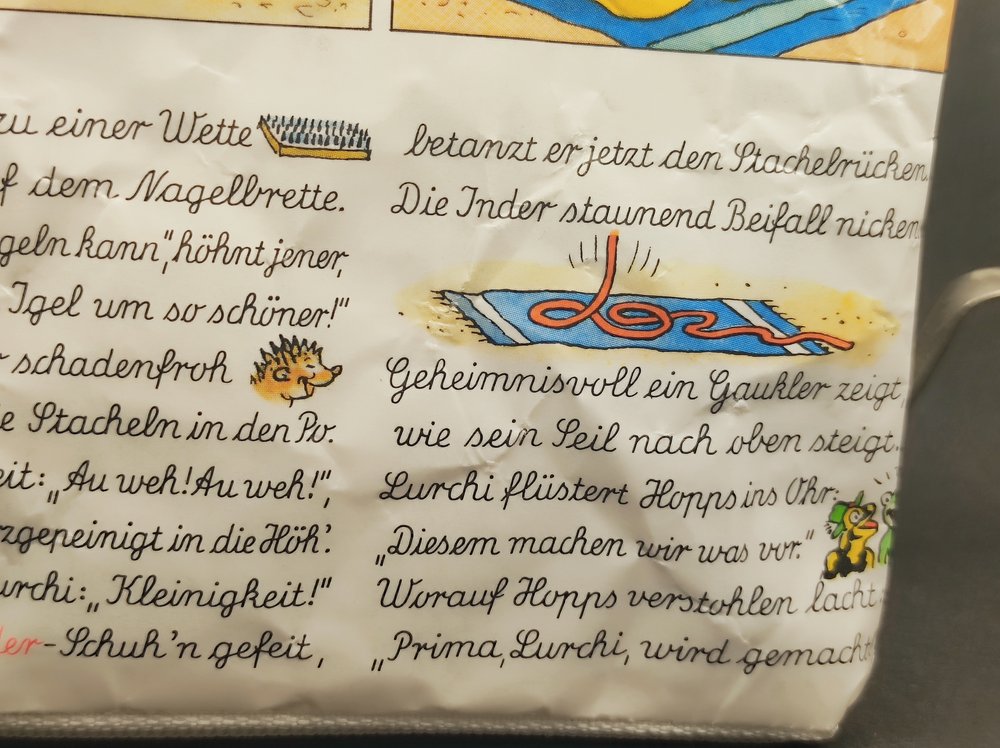 zu einer Wette
f dem Nagelbrette.
geln kann", höhnt jener,
Igel um so schöner!"
r schadenfroh
e Stacheln in den Po.
eit: „Au weh! Au weh!",
zgepeinigt in die Höh'.
urchi: „Kleinigkeit!"
er-Schuh'n gefeit,
betanzt er jetzt den Stachelrücken.
Die Inder staunend Beifall nicken
Geheimnisvoll ein Gaukler zeigt,
wie sein Seil nach oben steigt.
Lurchi flüstert Hopps ins Ohr:
„Diesem machen wir was vor."
Worauf Hopps verstohlen lacht:
„Prima, Lurchi, wird gemacht!